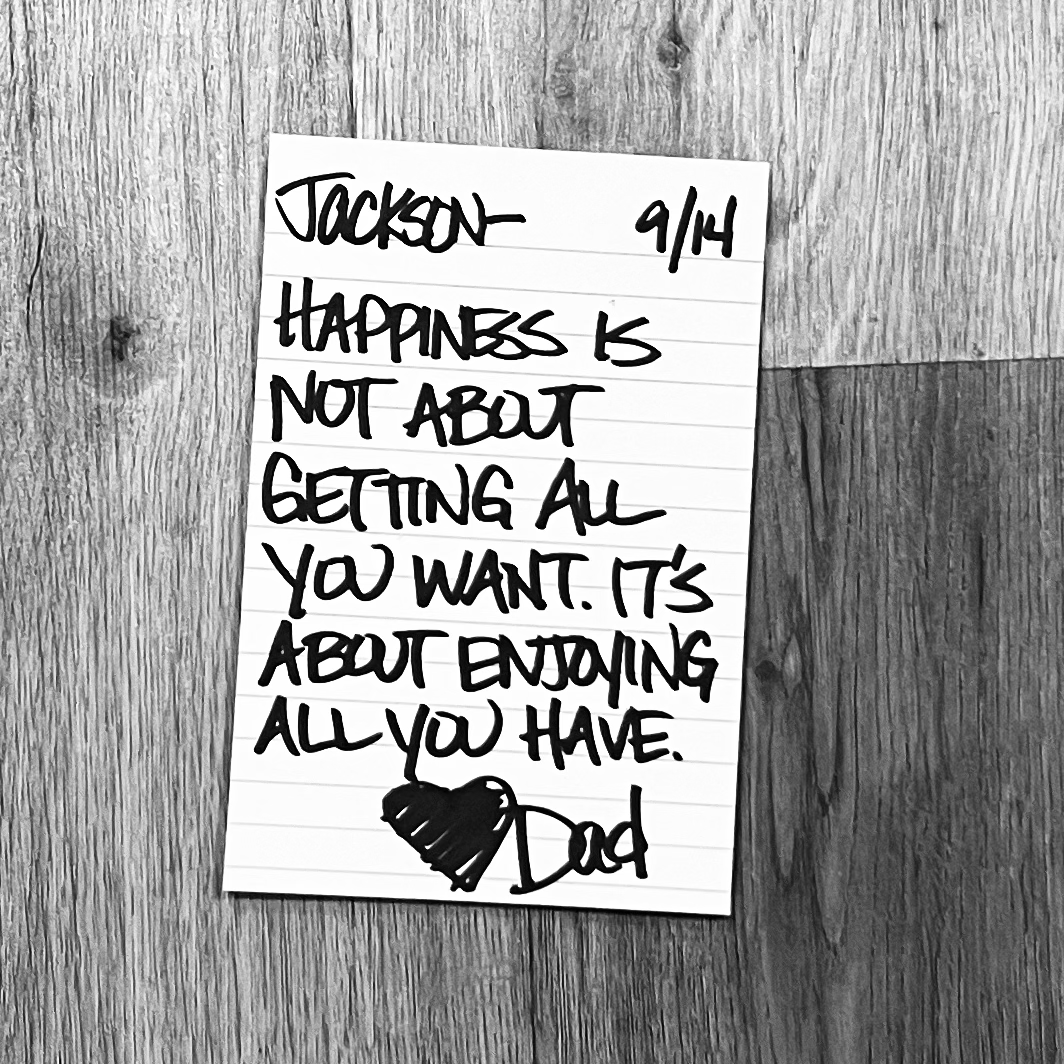 Jackson- 9/14
HAPPINESS IS
NOT ABOUT
GETTING ALL
YOU WANT. IT'S
ABOUT ENJOYING
ALL YOU HAVE.
Dad